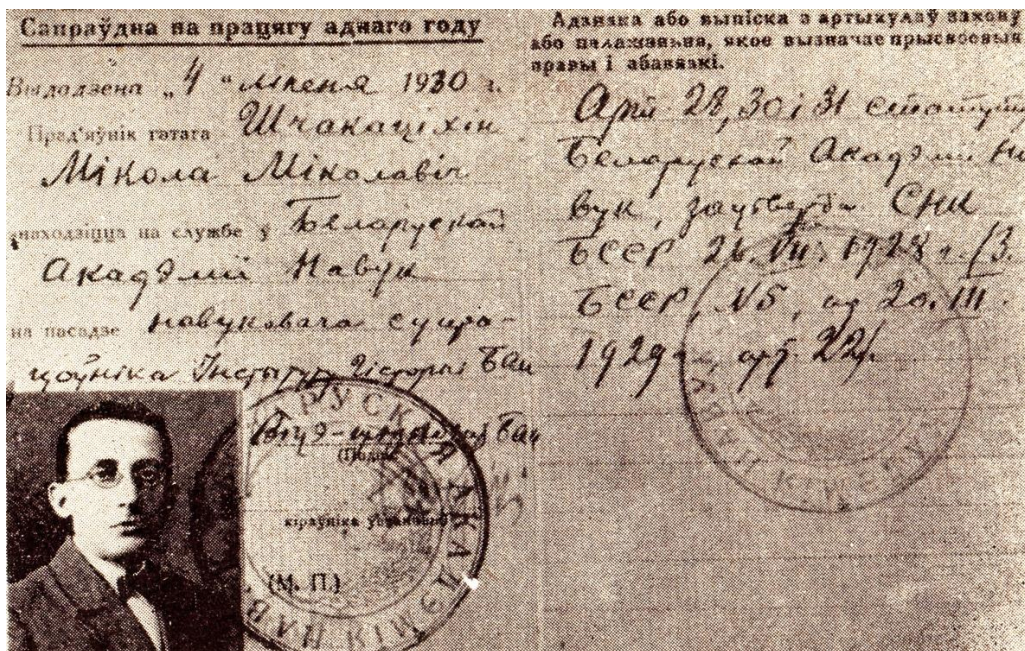 Сапраўдна на працягу аднаго году
Выдадзена „4“ ліпеня 1930 г.
Прад'яўнік гэтага Шчакаціхін
Мікола Міколавіч
знаходзіцца на службе ў Беларускай
Акадэміі Навук
на пасадзе навуковага супра-
цоўніка Інстытут Гісторыі БАН
(Подпіс)
кіраўніка ўстановы)
(М. П.)
БЕЛАРУСКАЯ АКАДЭМІЯ НАВУК
Адзнака або выпіска з артыкулаў закону
або палажэньня, якое вызначае прысвоеныя
правы і абавязкі.
Арт 28, 30 і 31 статуту
Беларускай Акадэміі На
вук, заўтвердж. СНК
БССР 26.VII. 1928 г. /З.
БССР, №5, ад 20.III.
1929 г., арт. 22/.